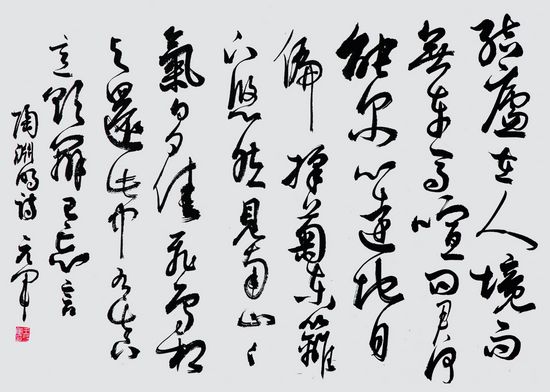 結廬在人境而
無車馬喧問君何
能爾心遠地自
偏採菊東籬
下悠然見南山々
氣日夕佳飛鳥相
與還此中有真
意欲辯已忘言
陶淵明詩 元軍